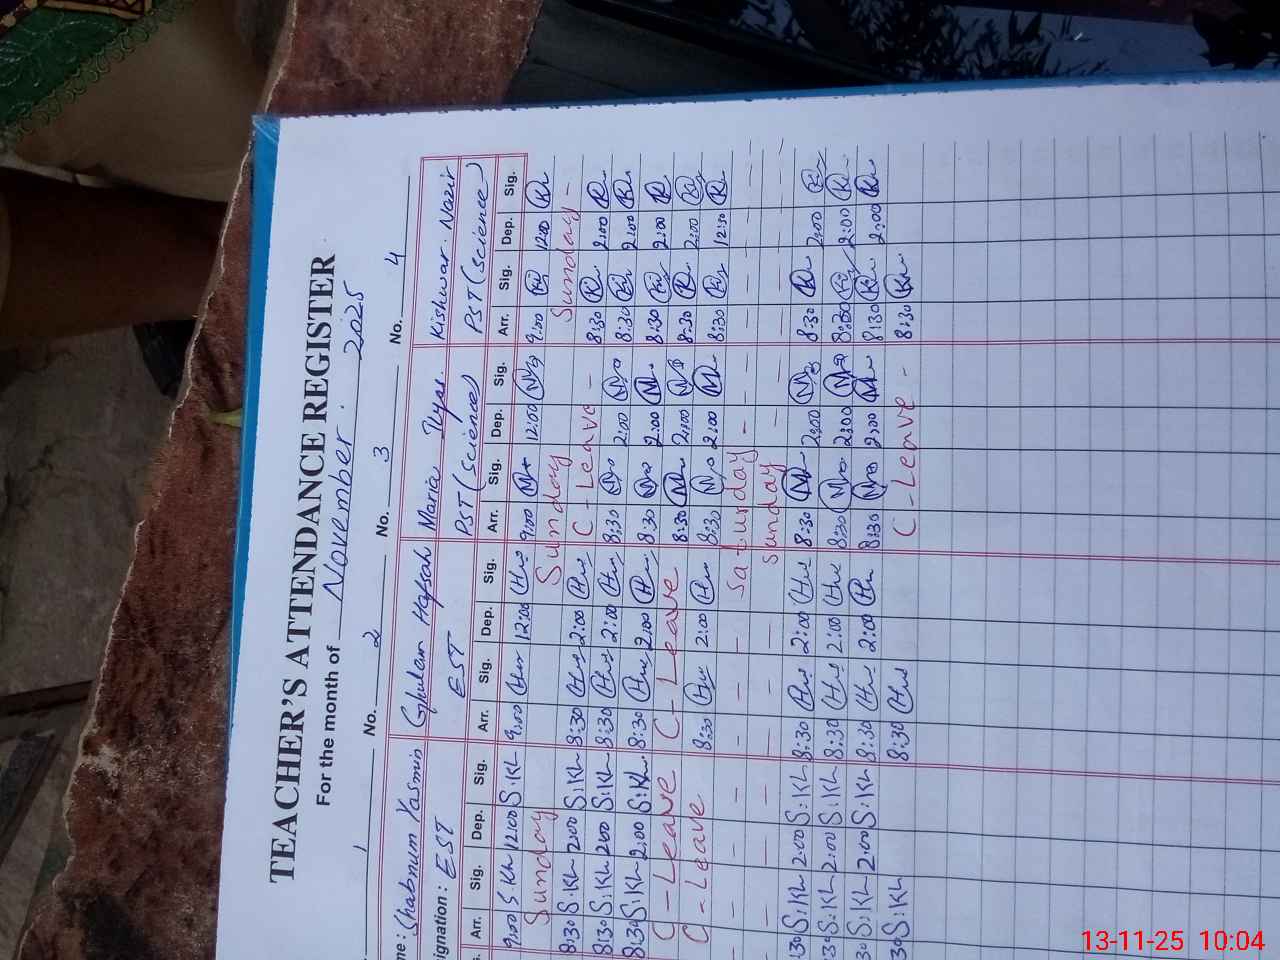 TEACHER'S ATTENDANCE REGISTER
For the month of November. 2025
1 No. 2 No. 3 No. 4
me: Shabnum Yasmin Ghulam Hafsah Maria Ilyas. Kishwar. Nazir
signation: EST EST PST (science) PST (science)
Arr. Sig. Dep. Sig. Arr. Sig. Dep. Sig. Arr. Sig. Dep. Sig. Arr. Sig. Dep. Sig.
9:00 S.Kh 12:00 S:Kh 9:00 12:00 9:00 12:00 9:00 12:00
Sunday Sunday Sunday -
8:30 S:Kh 2:00 S:Kh 8:30 2:00 C - Leave - 8:30 2:00
8:30 S:Kh 2:00 S:Kh 8:30 2:00 8:30 2:00 8:30 2:00
8:30 S:Kh 2:00 S:Kh 8:30 2:00 8:30 2:00 8:30 2:00
C - Leave C - Leave 8:30 2:00 8:30 2:00
C - Leave 8:30 2:00 8:30 2:00 8:30 12:30
Saturday
Sunday
:30 S:Kh 2:00 S:Kh 8:30 2:00 8:30 2:00 8:30 2:00
:30 S:Kh 2:00 S:Kh 8:30 2:00 8:30 2:00 8:30 2:00
:30 S:Kh 2:00 S:Kh 8:30 2:00 8:30 2:00 8:30 2:00
:30 S:Kh 8:30 C - Leave - 8:30
13-11-25 10:04